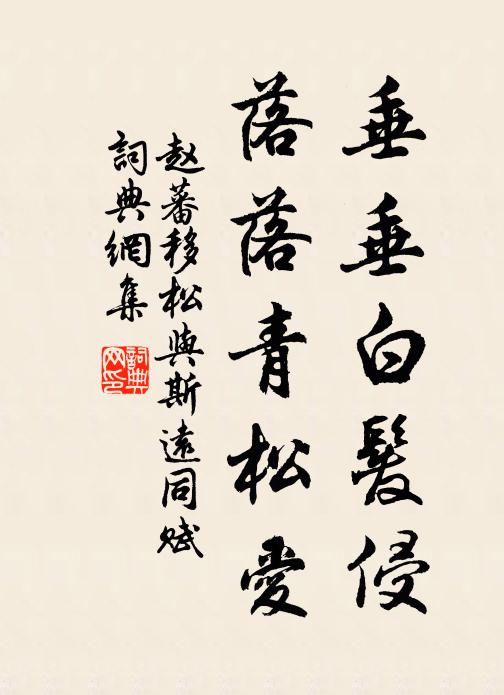 垂垂白髮侵
落落青松愛
赵蕃移松與斯遠同賦
詞典網集
詞典网印